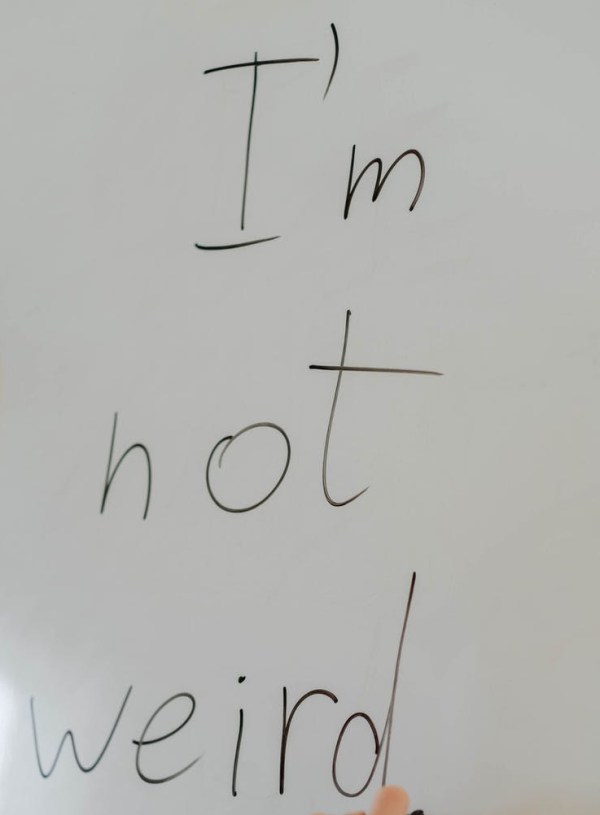 I'm
not
weird